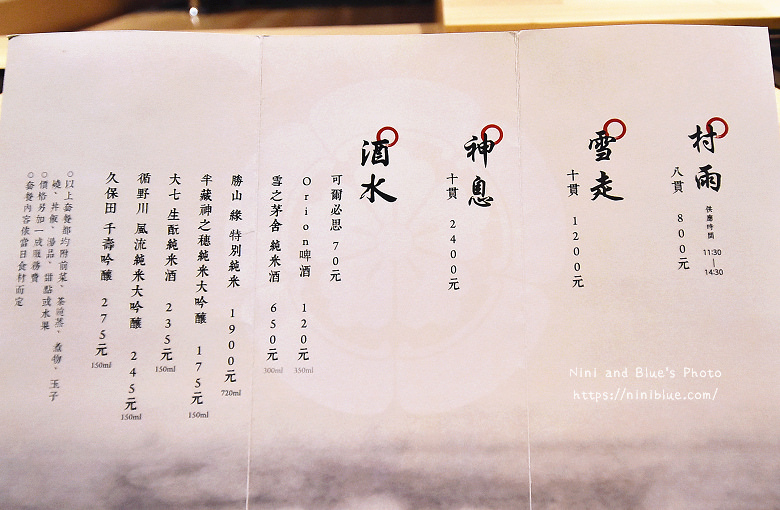 村雨
八貫 800元
供應時間 11:30|14:30
雪走
十貫 1200元
神息
十貫 2400元
酒水
可爾必思 70元
Orion啤酒 120元 350ml
雪之茅舍 純米酒 650元 300ml
勝山 緣 特別純米 1900元 720ml
半藏神之穗純米大吟釀 175元 150ml
大七 生酛純米酒 235元 150ml
循野川 風流純米大吟釀 245元 150ml
久保田 千壽吟釀 275元 150ml
○以上套餐都均附前菜、茶碗蒸、煮物、玉子
燒、丼飯、湯品、甜點或水果
○價格另加一成服務費
○套餐內容依當日食材而定
Nini and Blue's Photo
https://niniblue.com/